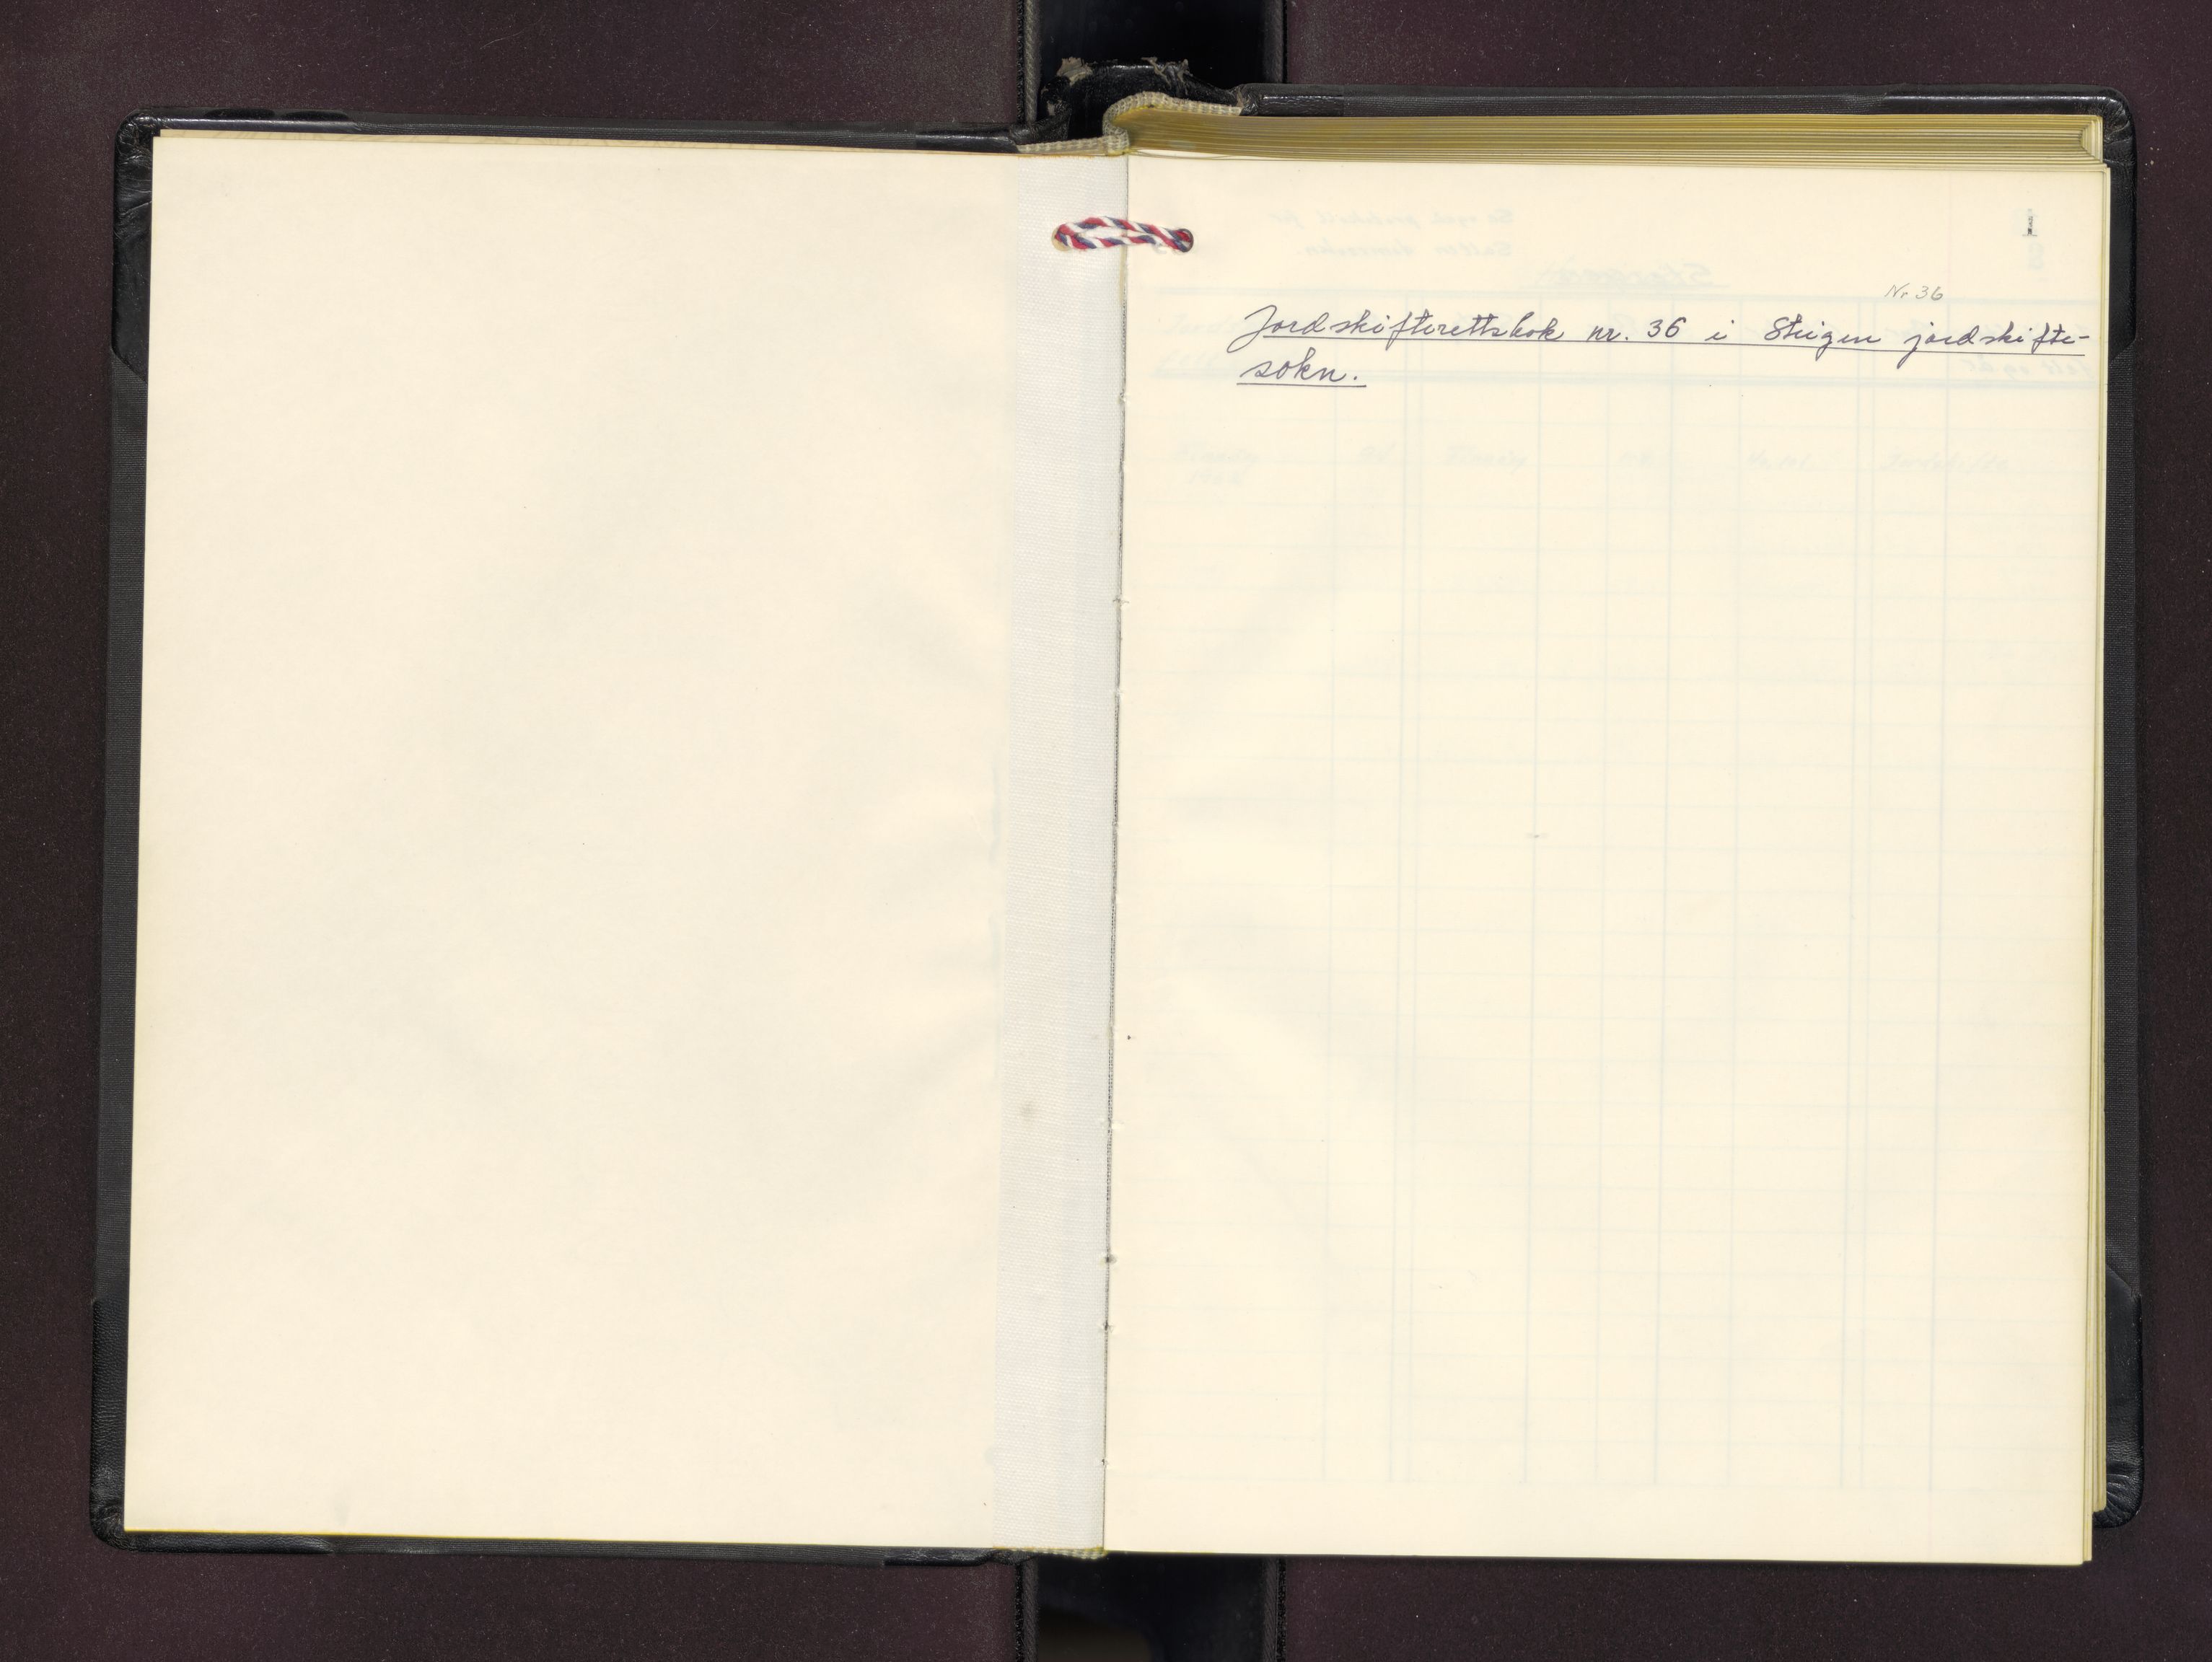 1
Nr 36
Jordskifterettsbok nr. 36 i Steigen jordskifte-
sokn.